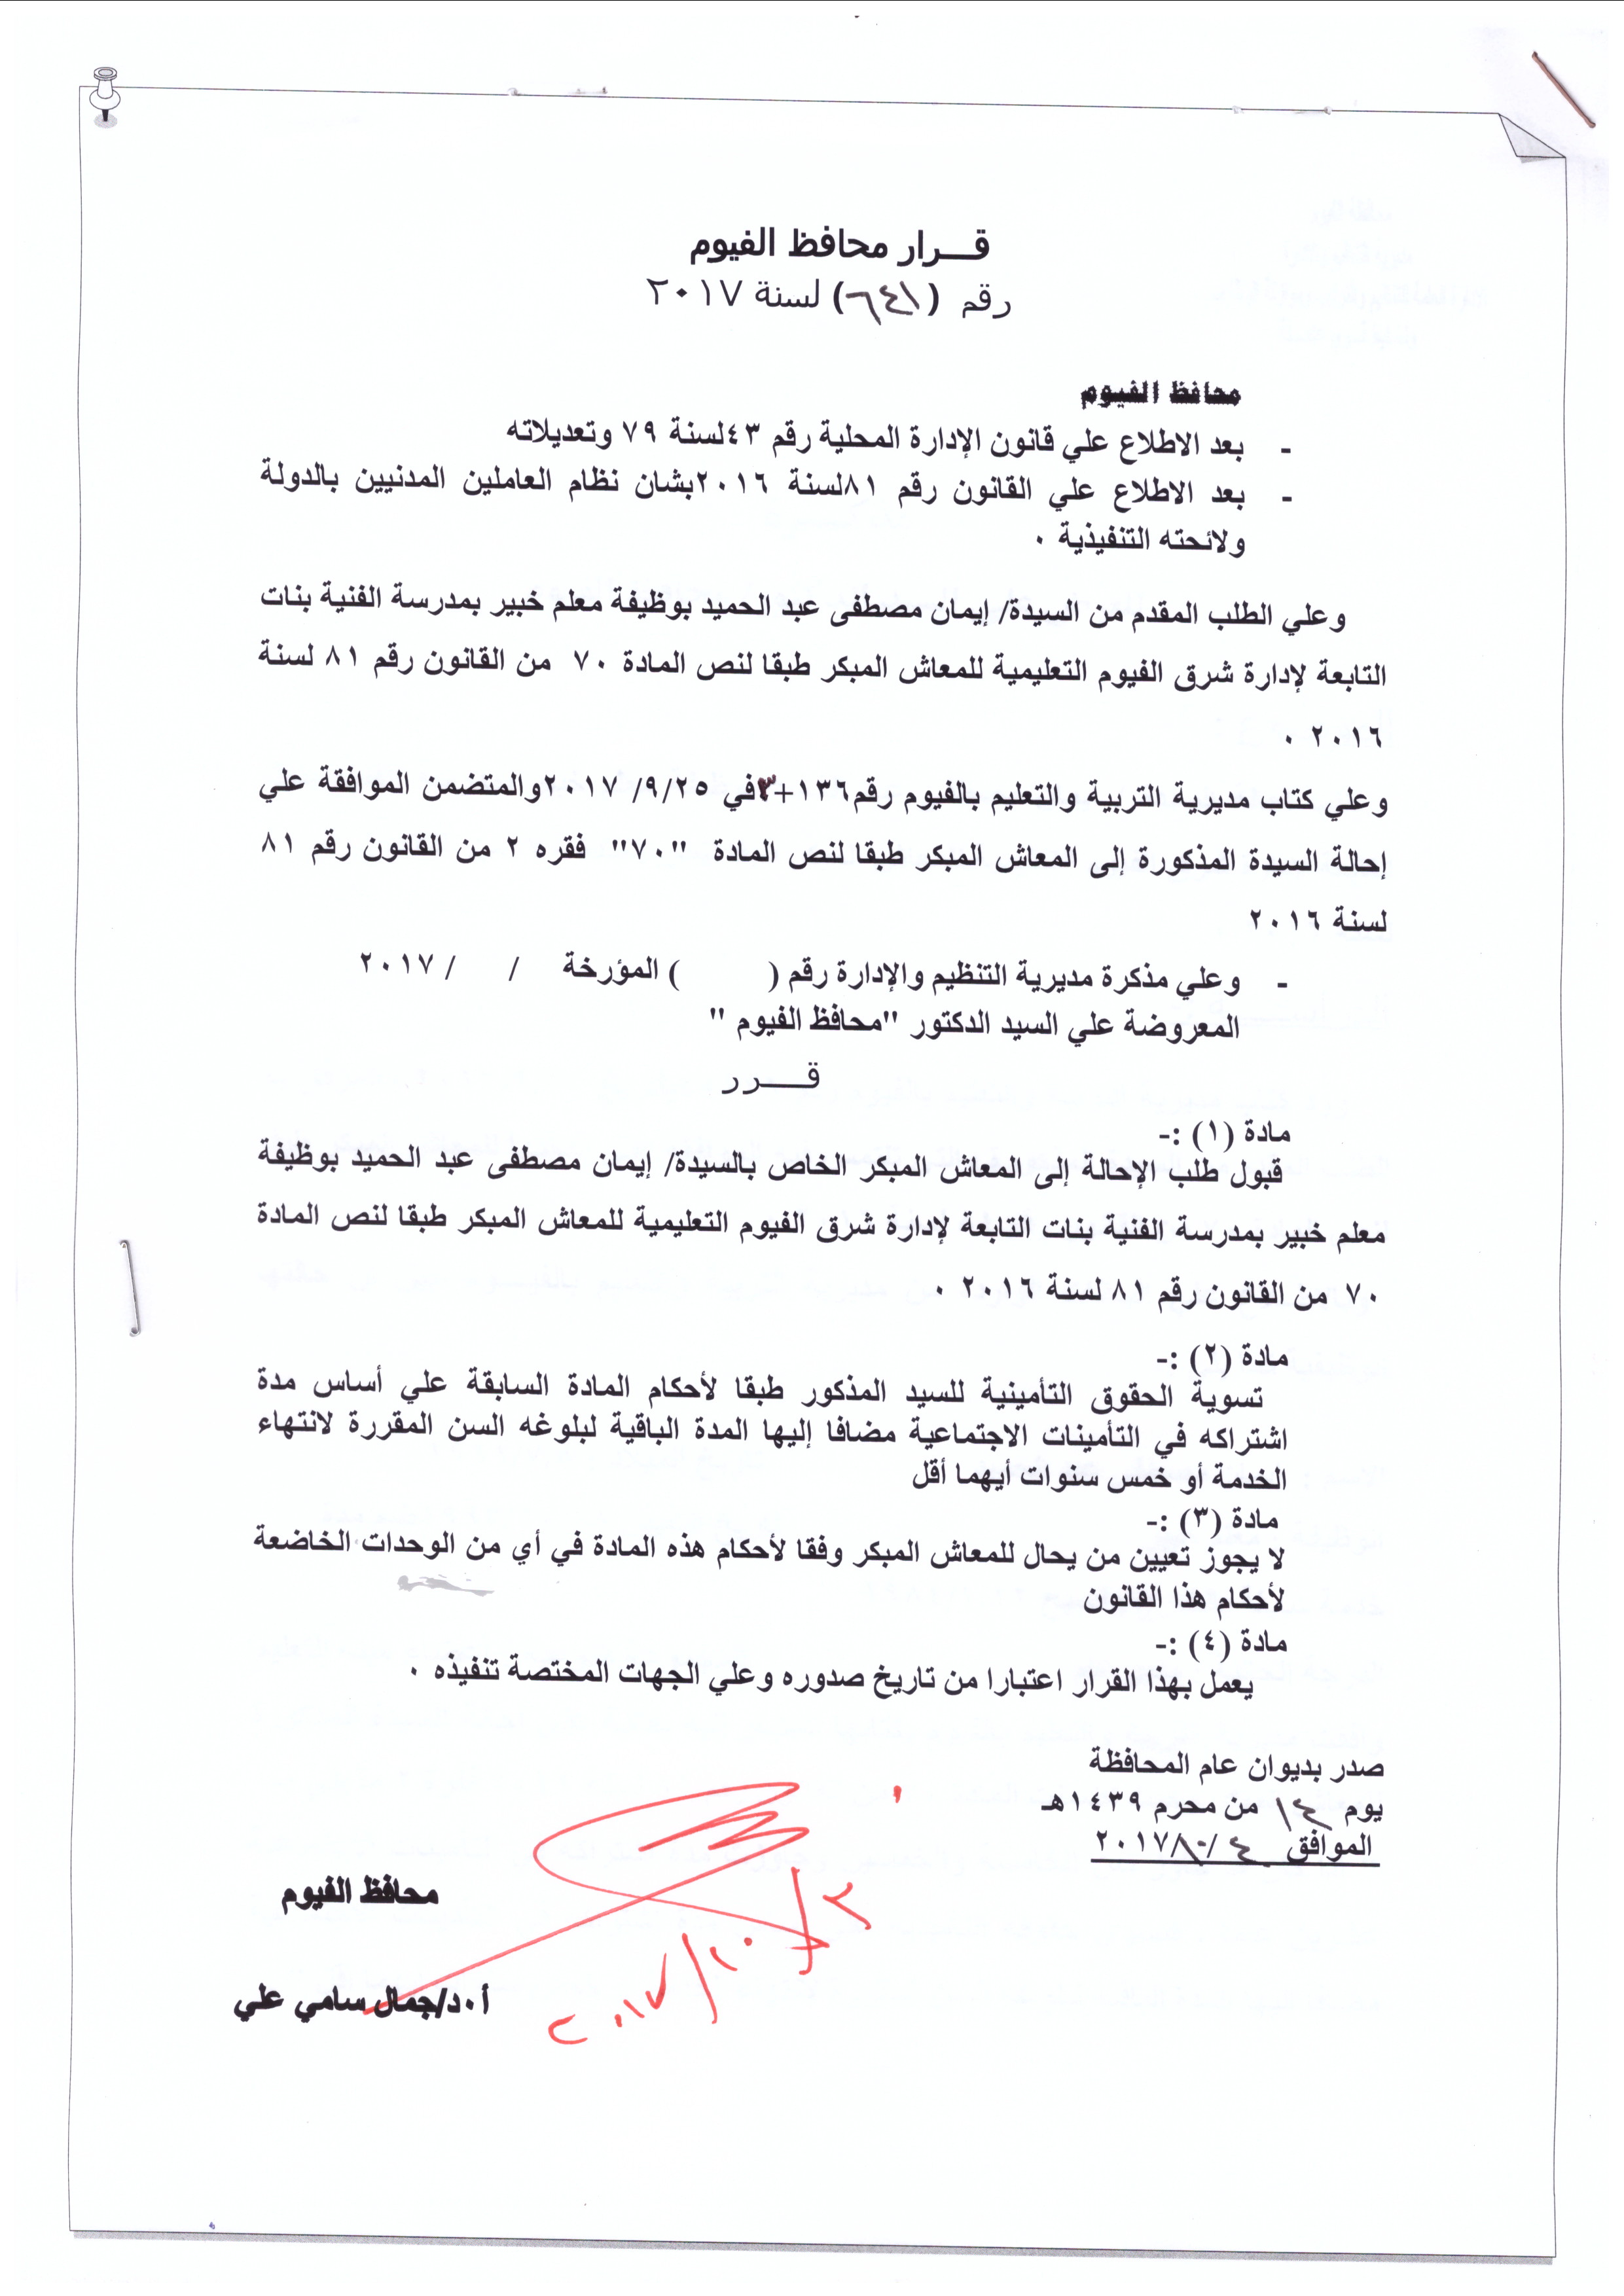 قـــرار محافظ الفيوم
رقم (٦٤١) لسنة ٢٠١٧
محافظ الفيوم
- بعد الاطلاع علي قانون الإدارة المحلية رقم ٤٣لسنة ٧٩ وتعديلاته
- بعد الاطلاع علي القانون رقم ٨١لسنة ٢٠١٦بشان نظام العاملين المدنيين بالدولة
ولائحته التنفيذية ٠
وعلي الطلب المقدم من السيدة/ إيمان مصطفى عبد الحميد بوظيفة معلم خبير بمدرسة الفنية بنات
التابعة لإدارة شرق الفيوم التعليمية للمعاش المبكر طبقا لنص المادة ٧٠ من القانون رقم ٨١ لسنة
٢٠١٦ ٠
وعلي كتاب مديرية التربية والتعليم بالفيوم رقم١٣٦+٣في ٩/٢٥/ ٢٠١٧والمتضمن الموافقة علي
إحالة السيدة المذكورة إلى المعاش المبكر طبقا لنص المادة "٧٠" فقره ٢ من القانون رقم ٨١
لسنة ٢٠١٦
- وعلي مذكرة مديرية التنظيم والإدارة رقم ( ) المؤرخة / / ٢٠١٧
المعروضة علي السيد الدكتور "محافظ الفيوم "
قـــرر
مادة (١) :-
قبول طلب الإحالة إلى المعاش المبكر الخاص بالسيدة/ إيمان مصطفى عبد الحميد بوظيفة
معلم خبير بمدرسة الفنية بنات التابعة لإدارة شرق الفيوم التعليمية للمعاش المبكر طبقا لنص المادة
٧٠ من القانون رقم ٨١ لسنة ٢٠١٦ ٠
مادة (٢) :-
تسوية الحقوق التأمينية للسيد المذكور طبقا لأحكام المادة السابقة علي أساس مدة
اشتراكه في التأمينات الاجتماعية مضافا إليها المدة الباقية لبلوغه السن المقررة لانتهاء
الخدمة أو خمس سنوات أيهما أقل
مادة (٣) :-
لا يجوز تعيين من يحال للمعاش المبكر وفقا لأحكام هذه المادة في أي من الوحدات الخاضعة
لأحكام هذا القانون
مادة (٤) :-
يعمل بهذا القرار اعتبارا من تاريخ صدوره وعلي الجهات المختصة تنفيذه ٠
صدر بديوان عام المحافظة
يوم ١٤ من محرم ١٤٣٩هـ
الموافق ٤ /١٠/٢٠١٧
محافظ الفيوم
أ٠د/جمال سامي علي
٢/١٠/٢٠١٧